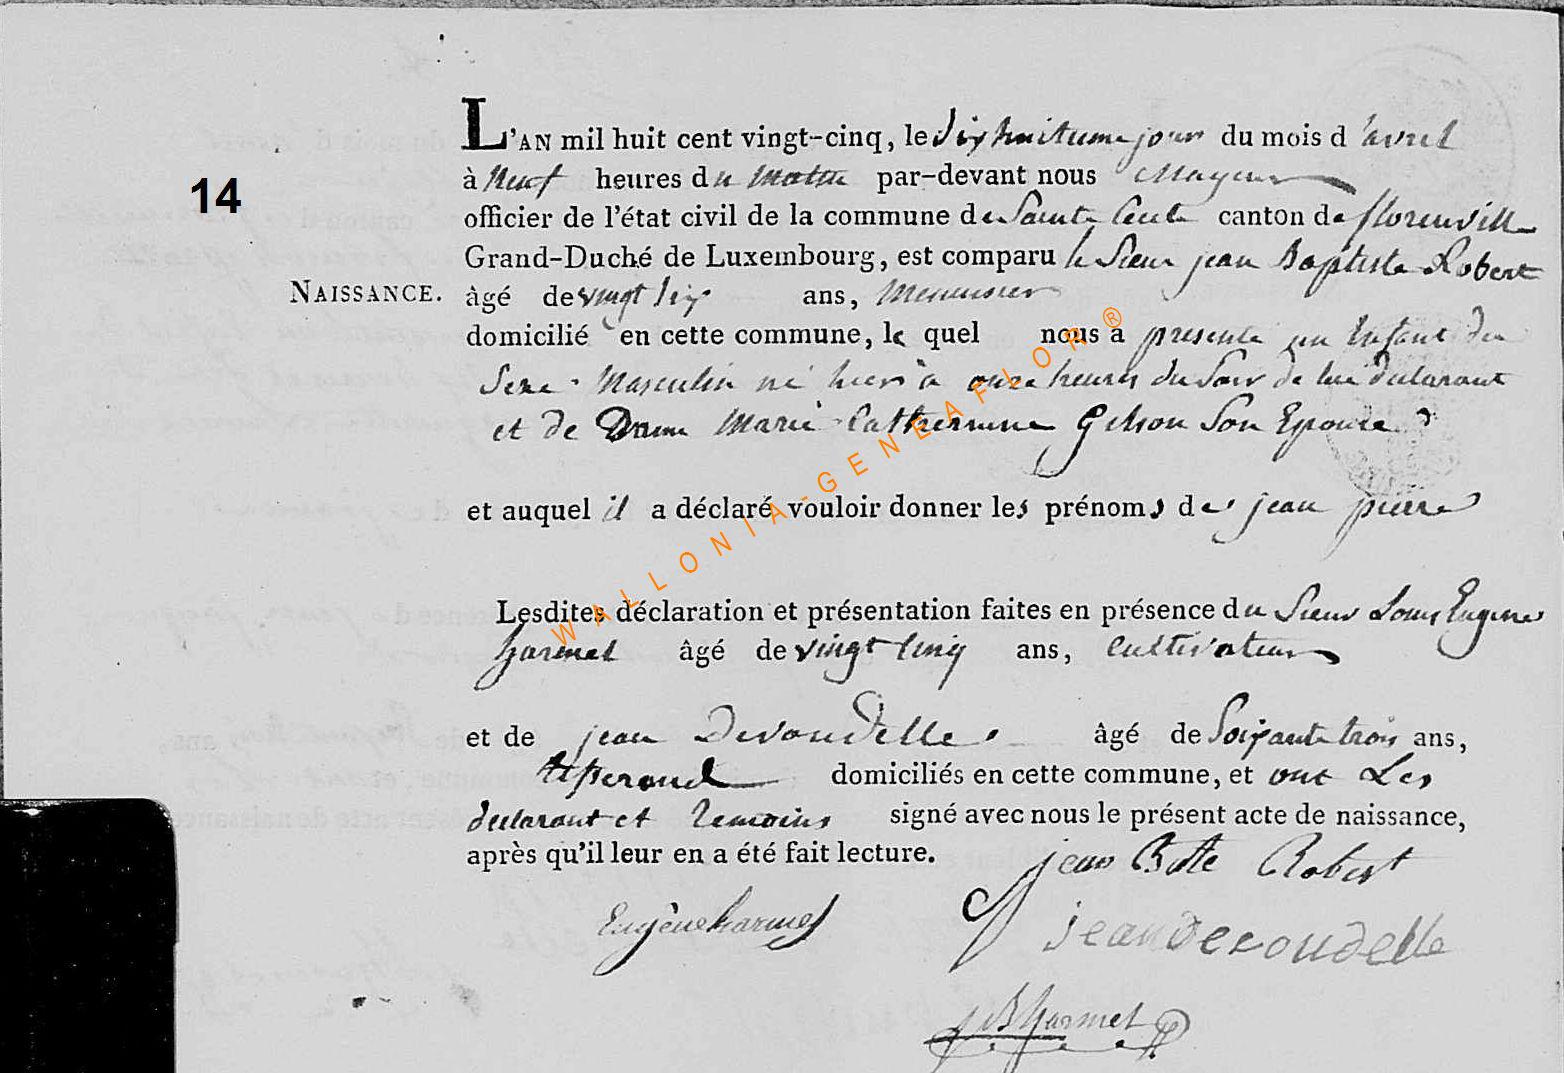 L'AN mil huit cent vingt-cinq, le dix huitieme jour du mois d'avril
14
à Neuf heures du Matin par-devant nous Mayeur
officier de l'état civil de la commune de Sainte Cecile canton de florenville
Grand-Duché de Luxembourg, est comparu le Sieur jean Baptiste Robert
NAISSANCE. âgé de vingt six ans, Menuisier
domicilié en cette commune, le quel nous a presenté un Enfant du
Sexe Masculin né hier à onze heures du Soir de lui declarant
et de Dame Marie Catherinne Gilson Son Epouse
et auquel il a déclaré vouloir donner les prénoms de jean pierre
Lesdites déclaration et présentation faites en présence du Sieur Louis Eugene
harmel âgé de vingt cinq ans, cultivateur
et de jean Devoudelle âgé de Soixante trois ans,
domiciliés en cette commune, et ont Les
declarant et temoins signé avec nous le présent acte de naissance,
après qu'il leur en a été fait lecture.
jean Bte Robert
Eugène harmel
jean Devoudelle
JB harmel
WALLONIA-GENEAFLOR ®